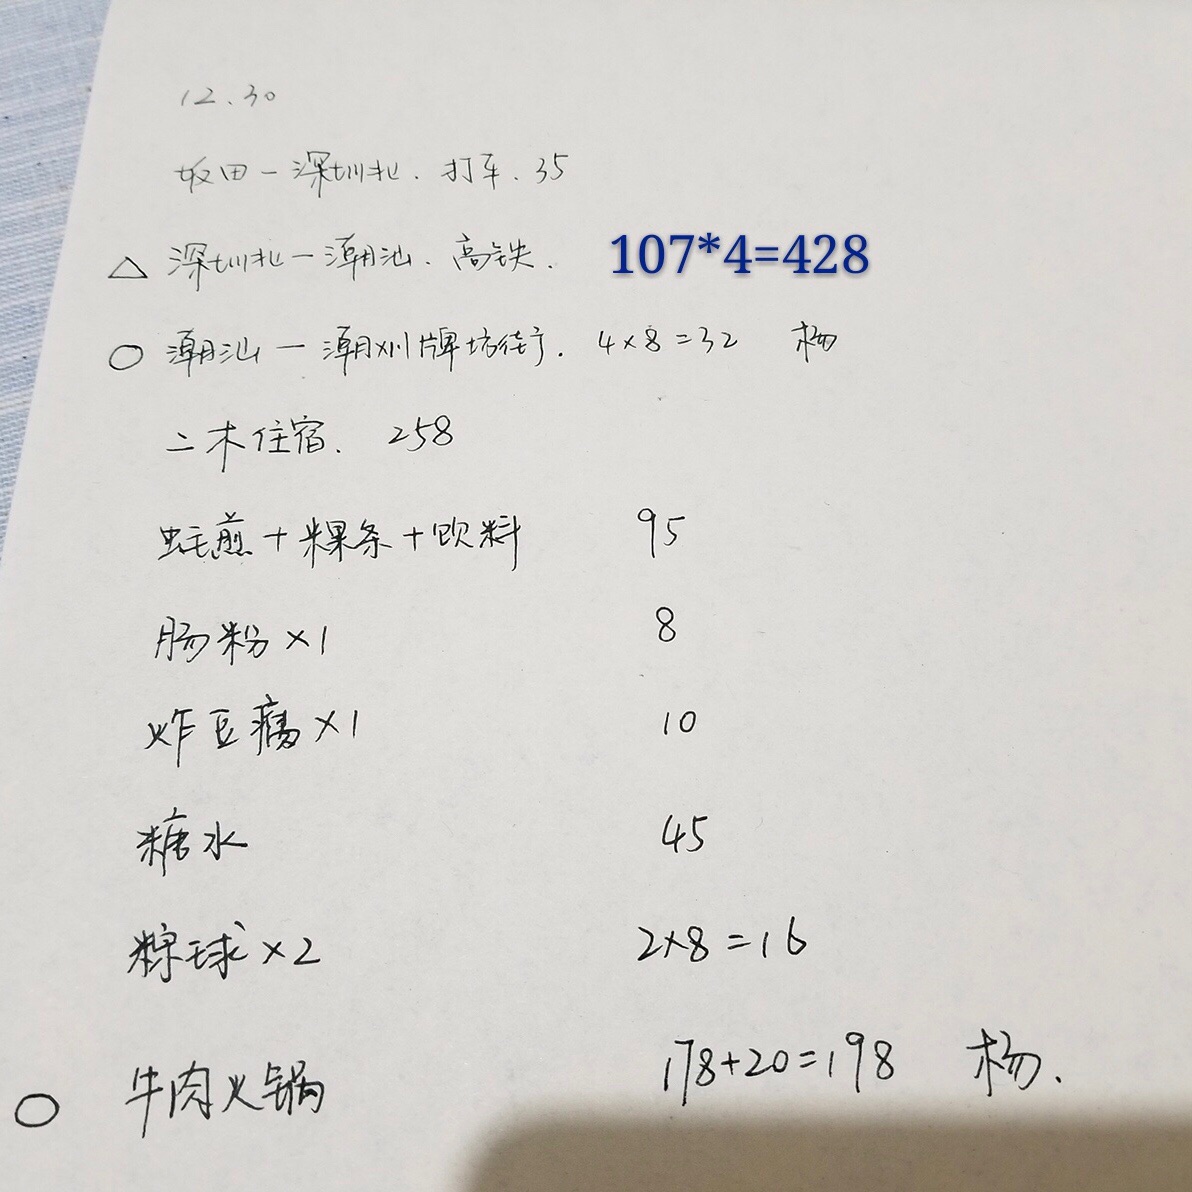 12.30
坂田-深圳北.打车.35
△ 深圳北-潮汕.高铁. 107*4=428
○ 潮汕-潮州牌坊街. 4×8=32 杨
二木住宿. 258
蚝煎+粿条+饮料 95
肠粉×1 8
炸豆腐×1 10
糖水 45
粽球×2 2×8=16
○ 牛肉火锅 178+20=198 杨.